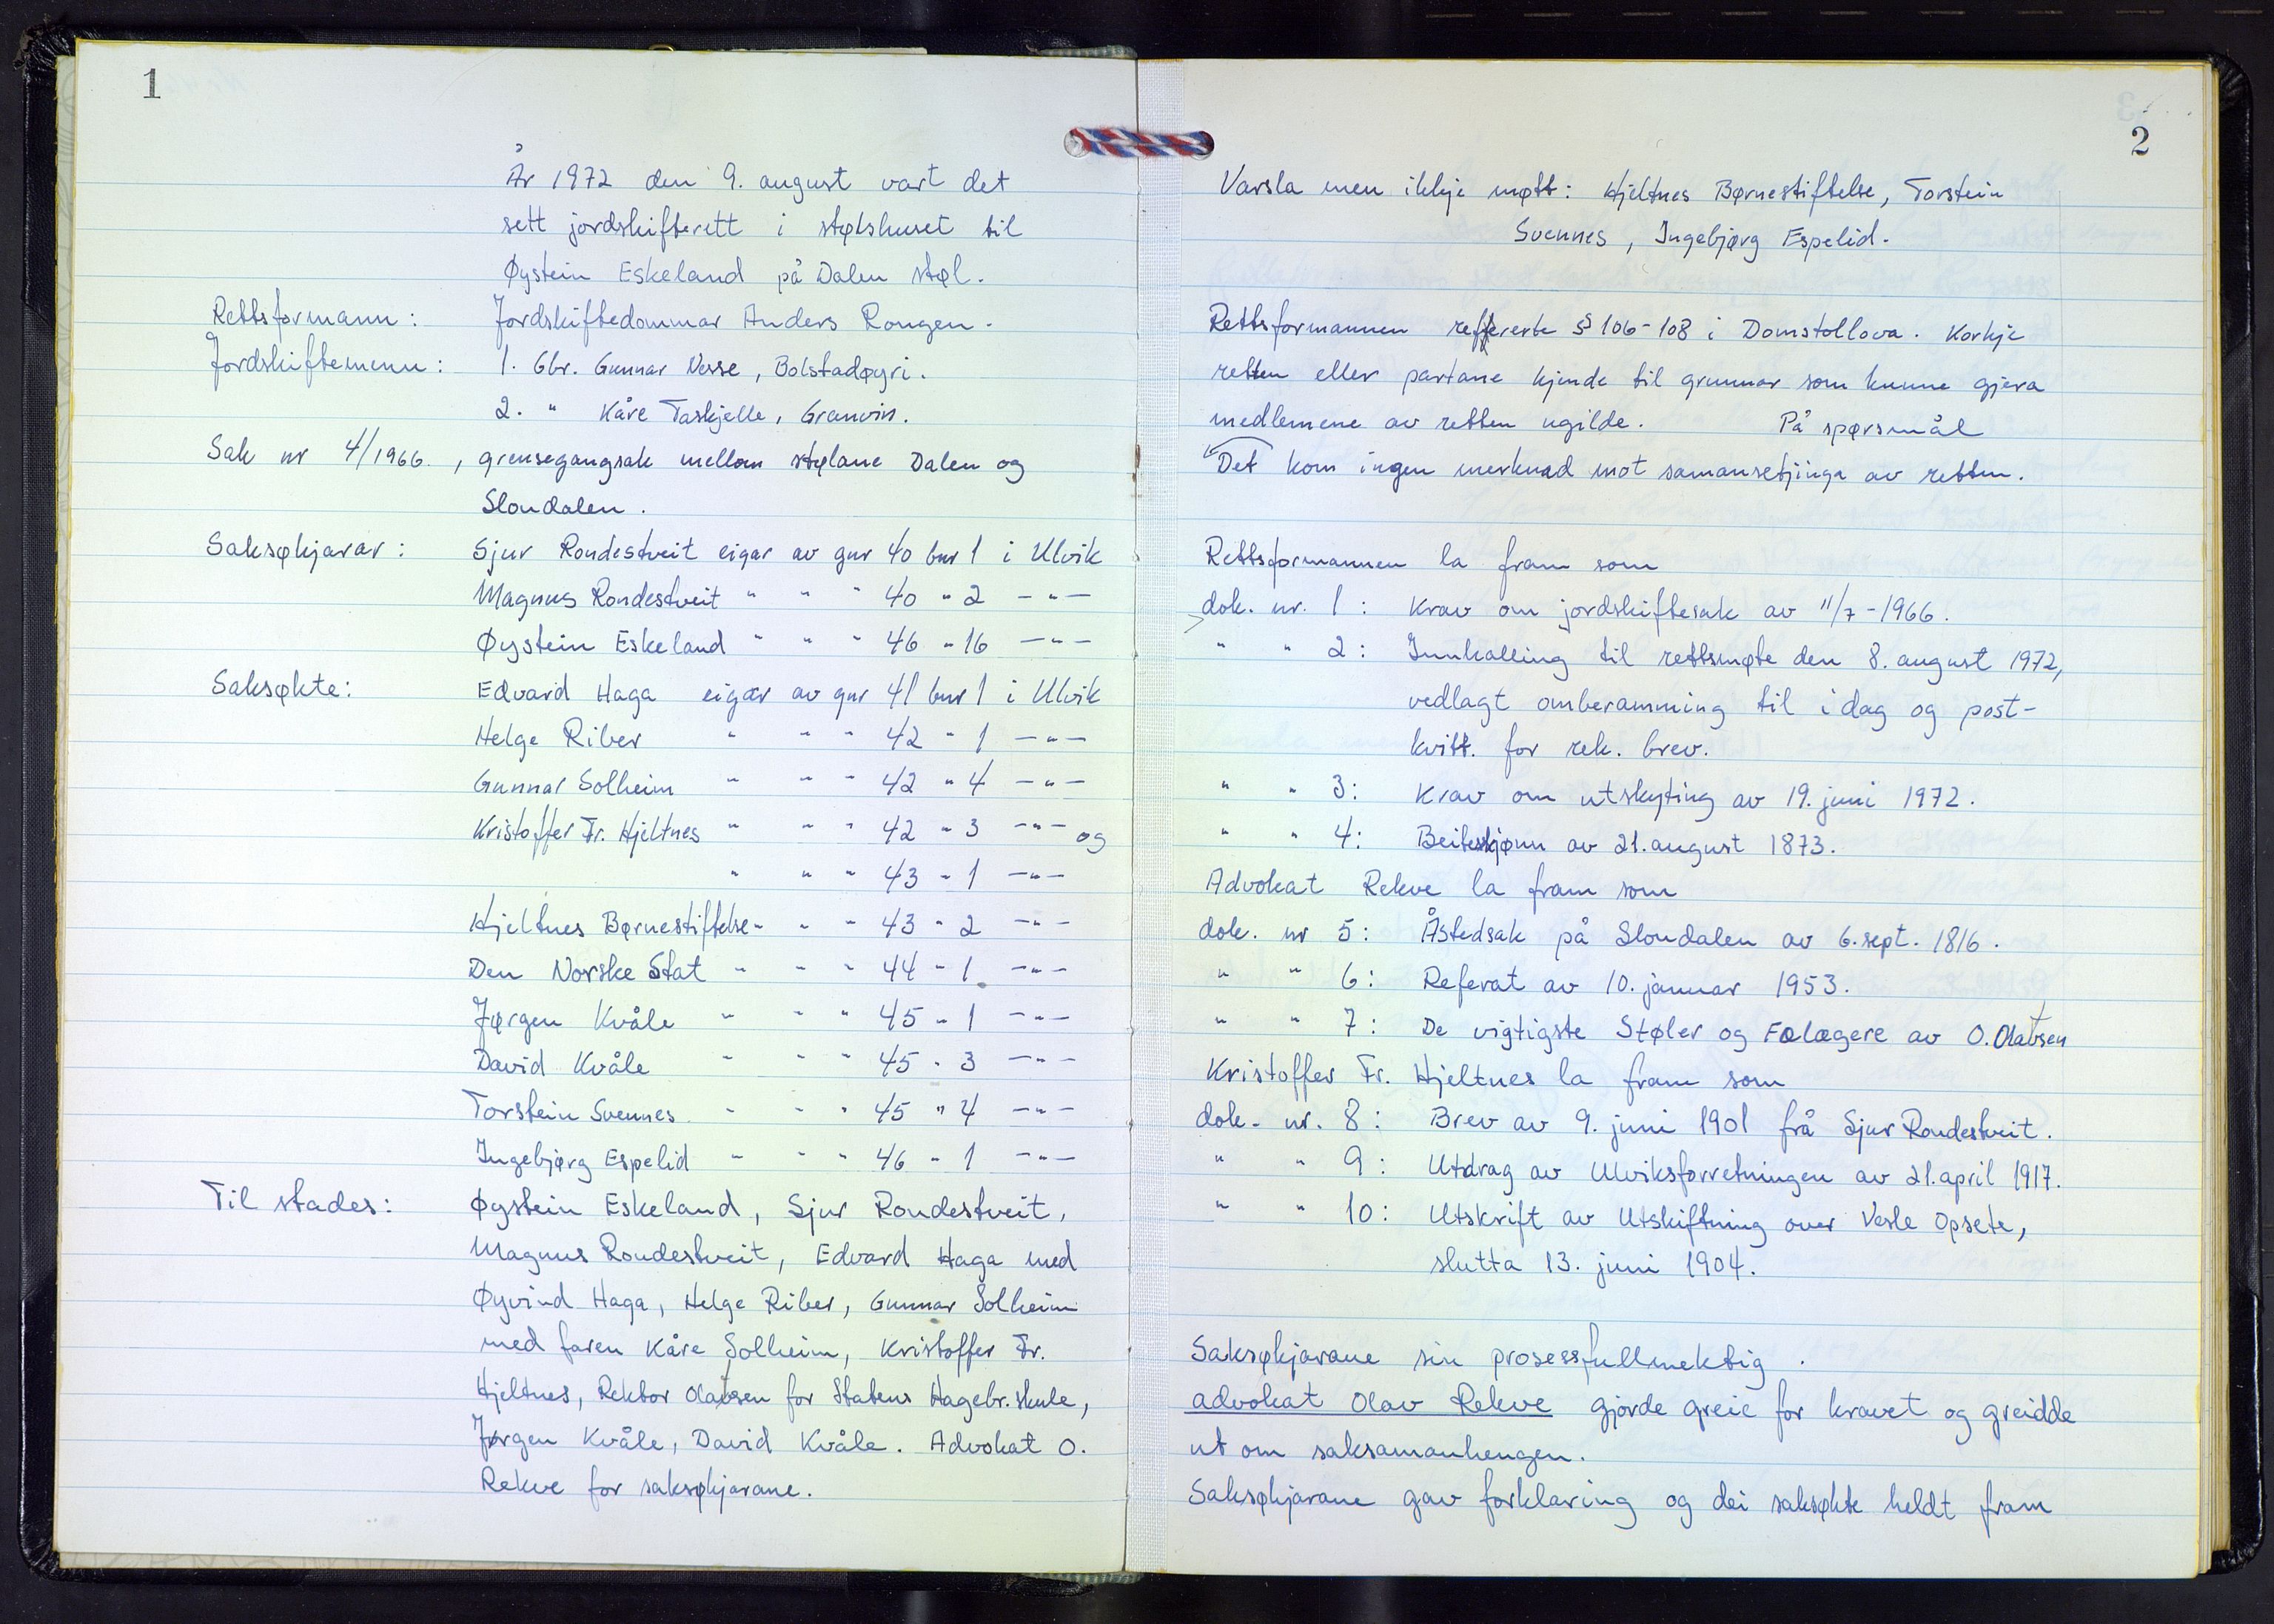 1
År 1972 den 9. august vart det
sett jordskifterett i stølshuset til
Øystein Eskeland på Dalen støl.
Rettsformann: Jordskiftedommar Anders Rongen.
Jordskiftemenn: 1. Gbr. Gunnar Nesse, Bolstadøyri.
2. " Kåre Taskjelle, Granvin.
Sak nr 4/1966., grensegangsak mellom stølane Dalen og
Slondalen.
Saksøkjarar: Sjur Rondestveit eigar av gnr 40 bnr 1 i Ulvik
Magnus Rondestveit " " " 40 " 2 — " —
Øystein Eskeland " " " 46 " 16 — " —
Saksøkte: Edvard Haga eigar av gnr 41 bnr 1 i Ulvik
Helge Riber " " " 42 " 1 — " —
Gunnar Solheim " " " 42 " 4 — " —
Kristoffer Fr. Hjeltnes " " " 42 " 3 — " — og
" " " 43 " 1 — " —
Hjeltnes Børnestiftelse " " " 43 " 2 — " —
Den Norske Stat " " " 44 " 1 — " —
Jørgen Kvåle " " " 45 " 1 — " —
David Kvåle " " " 45 " 3 — " —
Torstein Svennes " " " 45 " 4 — " —
Ingebjørg Espelid " " " 46 " 1 — " —
Til stades: Øystein Eskeland, Sjur Rondestveit,
Magnus Rondestveit, Edvard Haga med
Øyvind Haga, Helge Riber, Gunnar Solheim
med faren Kåre Solheim, Kristoffer Fr.
Hjeltnes, Rektor Olafsen for Statens Hagebr. skule,
Jørgen Kvåle, David Kvåle. Advokat O.
Rekve for saksøkjarane.
2
Varsla men ikkje møtt: Hjeltnes Børnestiftelse, Torstein
Svennes, Ingebjørg Espelid.
Rettsformannen refererte § 106-108 i Domstollova. Korkje
retten eller partane kjende til grunnar som kunne gjera
medlemene av retten ugilde. På spørsmål
Det kom ingen merknad mot samansetjinga av retten.
Rettsformannen la fram som
dok. nr. 1: Krav om jordskiftesak av 11/7-1966.
" " 2: Innkalling til rettsmøte den 8. august 1972,
vedlagt omberamming til i dag og post-
kvitt. for rek. brev.
" " 3: Krav om utskyting av 19. juni 1972.
" " 4: Beiteskjønn av 21. august 1873.
Advokat Rekve la fram som
dok. nr 5: Åstedsak på Slondalen av 6. sept. 1816.
" " 6: Referat av 10. januar 1953.
" " 7: De vigtigste Støler og Fælægere av O. Olafsen
Kristoffer Fr. Hjeltnes la fram som
dok. nr. 8: Brev av 9. juni 1901 frå Sjur Rondestveit.
" " 9: Utdrag av Ulviksforretningen av 21. april 1917.
" " 10: Utskrift av Utskiftning over Vesle Opsete,
slutta 13. juni 1904.
Saksøkjarane sin prosessfullmektig.
advokat Olav Rekve gjorde greie for kravet og greidde
ut om saksamanhengen.
Saksøkjarane gav forklaring og dei saksøkte heldt fram